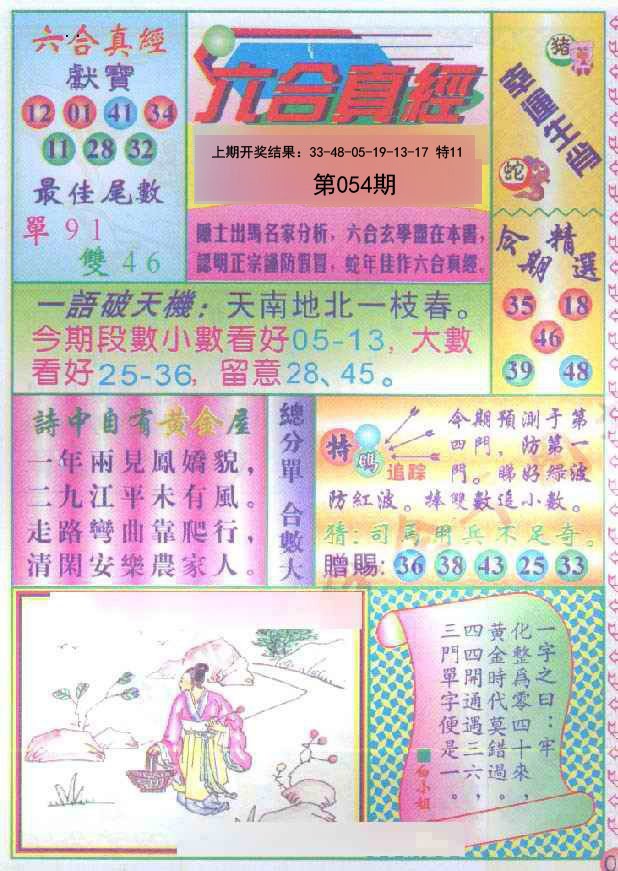 六合真經
獻寶
12 01 41 34
11 28 32
最佳尾數
單91
雙46
六合真經
上期开奖结果：33-48-05-19-13-17 特11
第054期
隱士出馬名家分析，六合玄學盡在本書，
認明正宗謹防假冒，蛇年佳作六合真經。
猪
蛇
今期精選
35 18
46
39 48
一語破天機：天南地北一枝春。
今期段數小數看好05-13，大數
看好25-36，留意28、45。
詩中自有黃金屋
一年兩見鳳嬌貌，
二九江平未有風。
走路彎曲靠爬行，
清閑安樂農家人。
總分單 合數大
特碼
追踪
今期預測于第
四門，防第一
門。睇好绿波
防紅波。捧雙數追小數。
猜：司馬用兵不足奇。
贈賜：36 38 43 25 33
一字之曰：牢
化整爲零四十來，
黃金時代莫錯過，
四四開通遇三六，
三門單字便是一。
白小姐